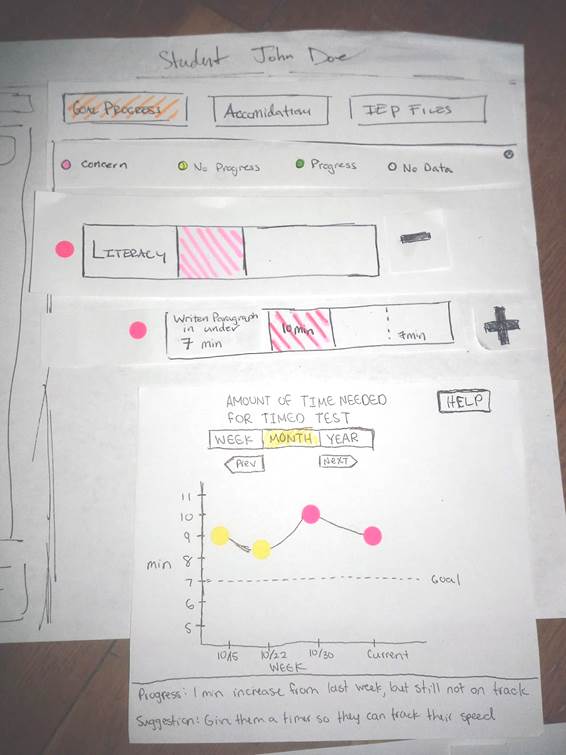 Student John Doe
GOAL PROGRESS
Accomidations
IEP FILES
Concern
No Progress
Progress
No Data
LITERACY
Writen Paragraph
in under
7 min
10 min
7min
HELP
AMOUNT OF TIME NEEDED
FOR TIMED TEST
WEEK MONTH YEAR
Prev
NEXT
11
10
9
8
7
6
5
min
Goal
10/15 10/22 10/30 Current
WEEK
Progress: 1 min increase from last week, but still not on track
Suggestion: Givn them a timer so they can track their speed